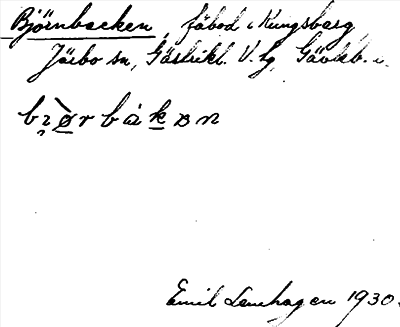 Björnbacken, fäbod i Kungsberg,
Järbo sn, Gästrikl. V. hg, Gävleb. l.
bı̣ø̠r bàk̠ɐn
Emil Lenhagen 1930.